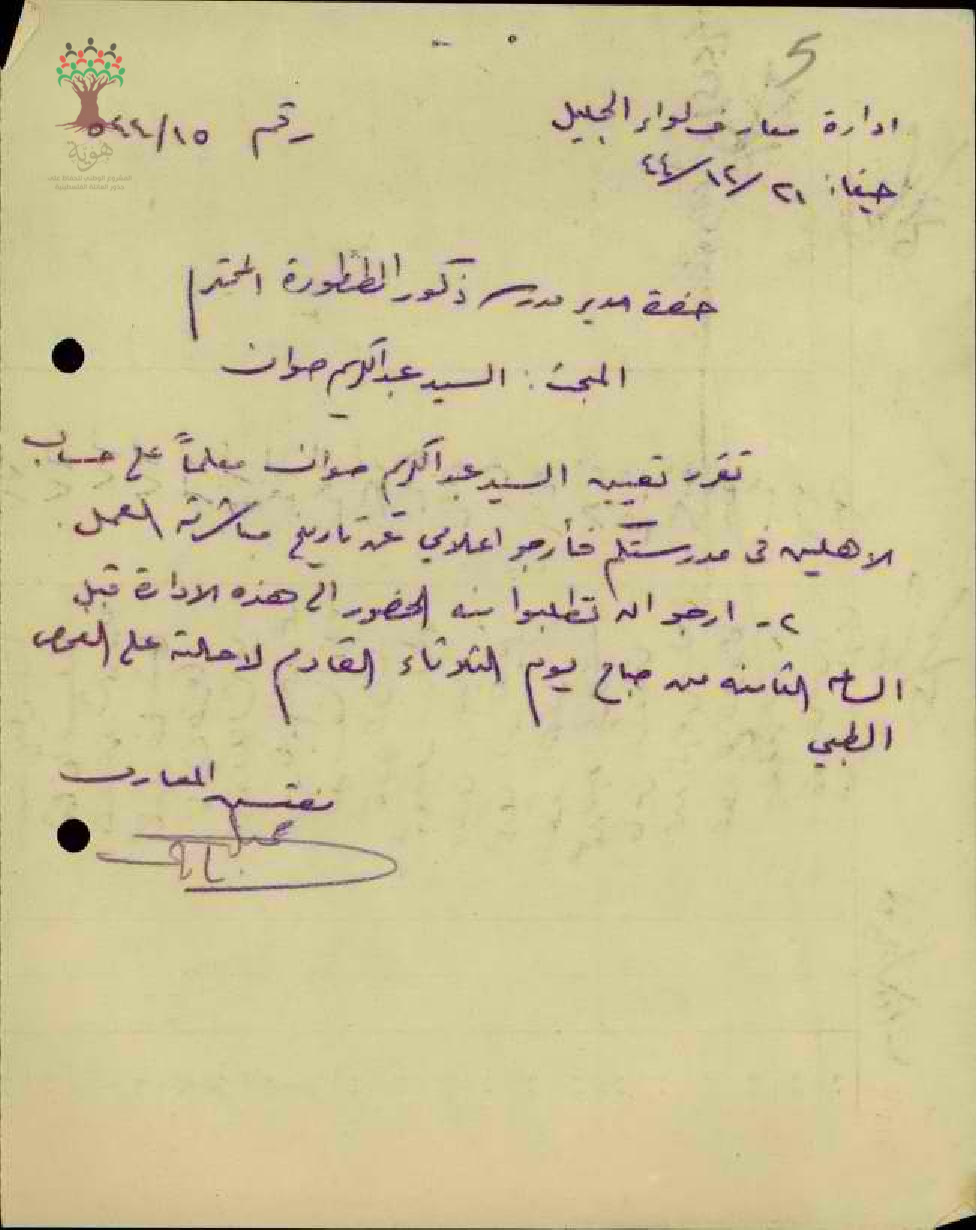 5
ادارة معارف لواء الجليل
رقم ١٥/٥٤٤
حيفا: ٢١/١٢/٤٤
هوية
المشروع الوطني للحفاظ على
جذور العائلة الفلسطينية
حضرة مدير مدرسة ذكور الطنطورة المحترم
المبحث: السيد عبد الكريم صوان
تقرر تعيين السيد عبد الكريم صوان معلماً على حساب
الاهلين في مدرستكم فأرجو اعلامي عن تاريخ مباشرته العمل.
٢ - ارجو ان تطلبوا منه الحضور الى هذه الادارة قبل
الساعة الثامنة من صباح يوم الثلاثاء القادم لاحالته على الفحص
الطبي
مفتش المعارف